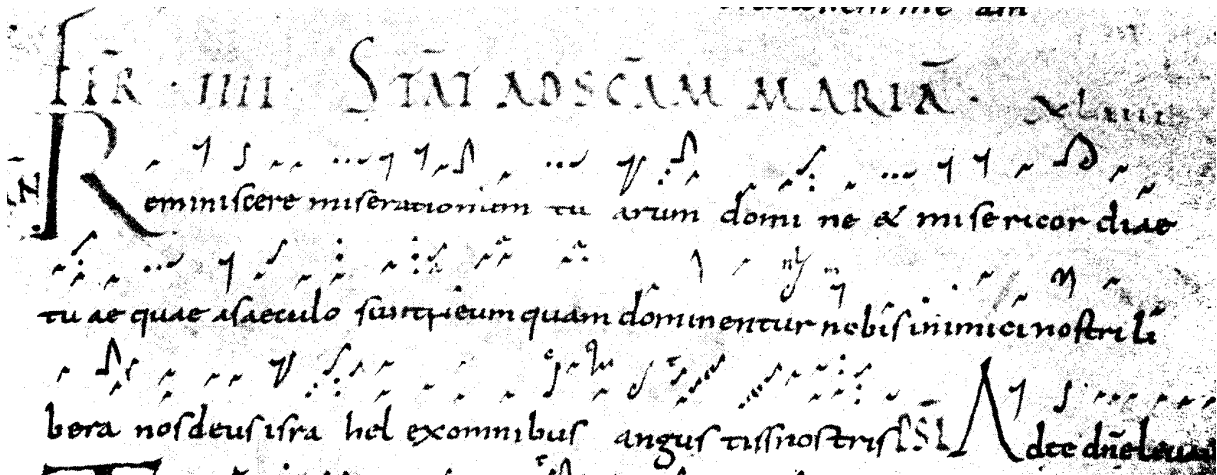 FER · IIII STAT AD SCAM MARIA · XLIIII
Reminiscere miserationum tuarum domine & misericordiae
tuae quae a saeculo sunt ne umquam dominentur nobis inimici nostri li
bera nos deus israhel ex omnibus angustiis nostris PSL Ad te dne leuaui